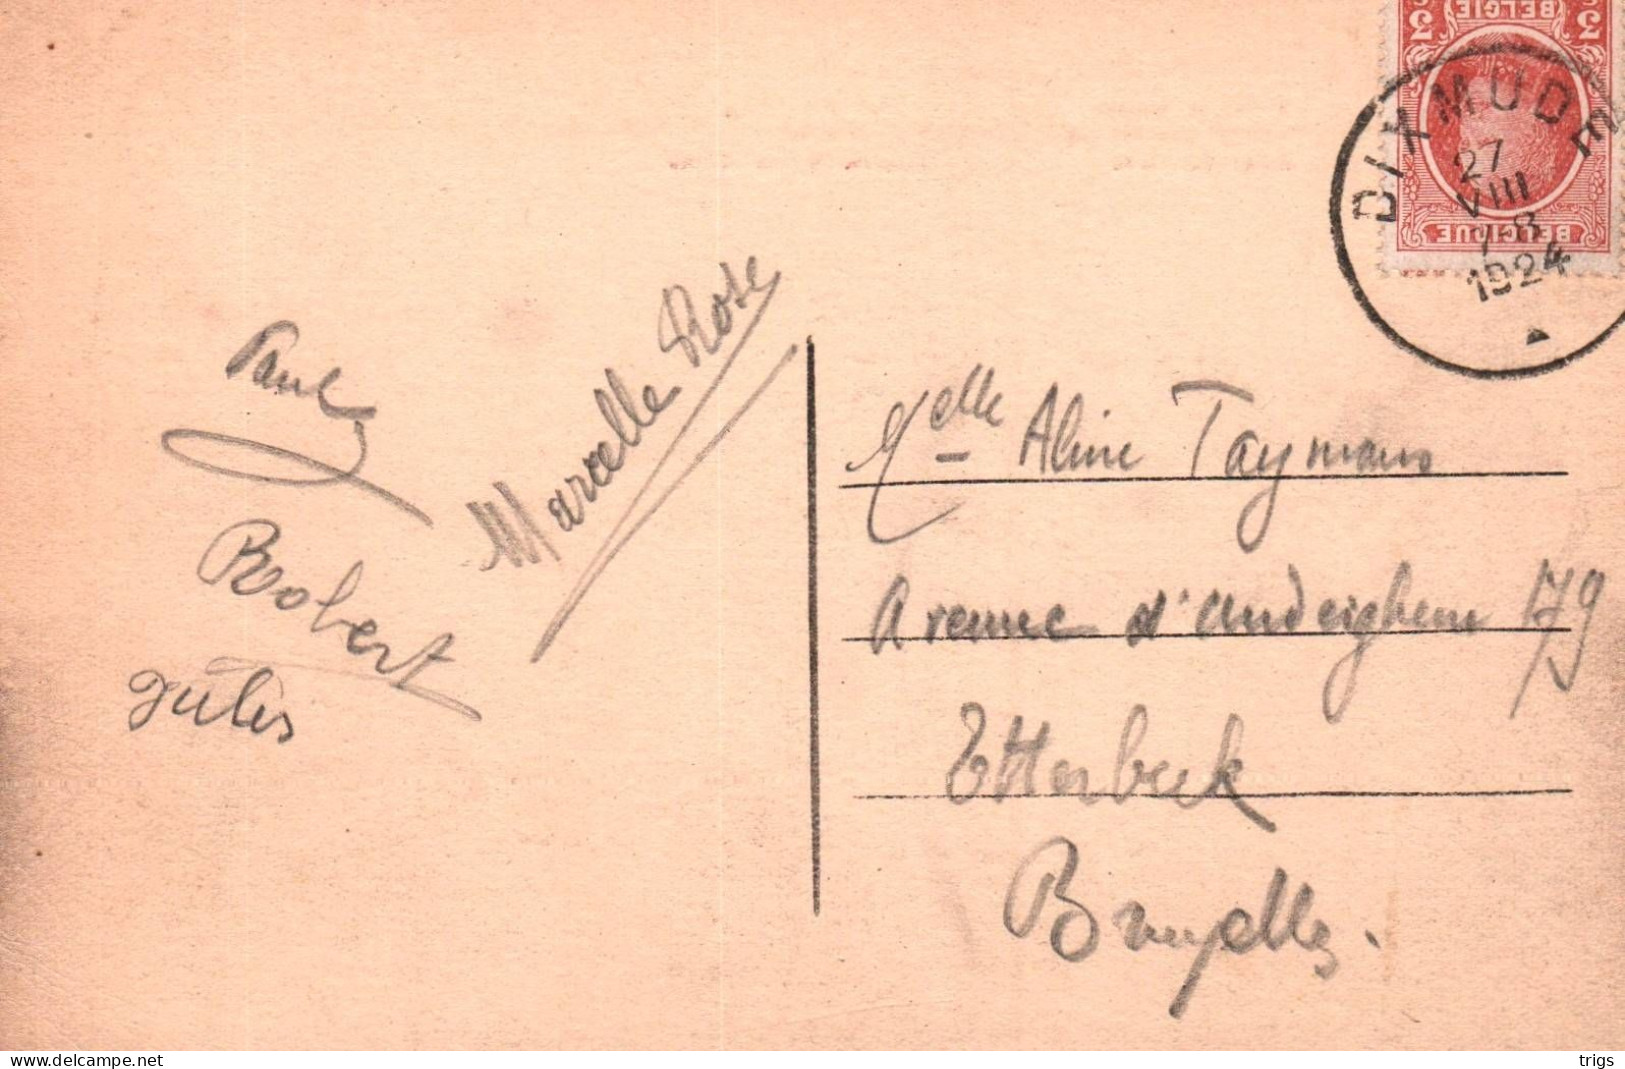 BELGIE
DIXMUDE
27
VIII
7-8
1924
BELGIQUE
Paul
Marcelle Rose
Robert
Jules
Melle Aline Taymans
Avenue d'Auderghem 179
Etterbeek
Bruxelles.
www.delcampe.net
trigs